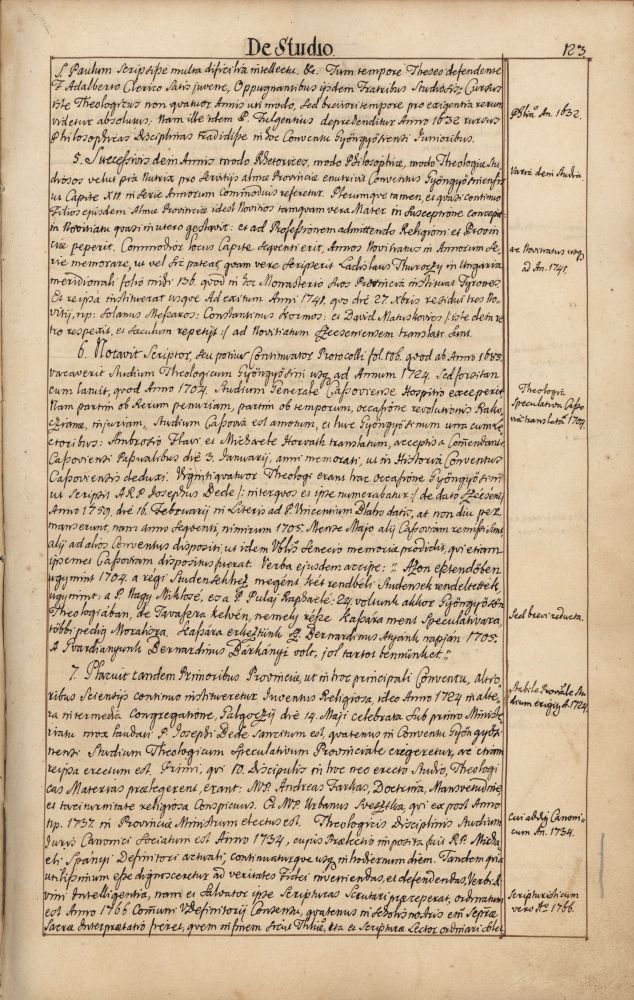 De Studio.
123
S. Paulum Scripsisse multa dificilia intellectu. &c. Tum tempore Theses defendente
F. Adalberto Clerico Satis juvene, Oppugnantibus ijsdem Fratribus Studiosis; Cursus
iste Theologicus non quatuor Annis uti modo, sed breviori tempore pro exigentia rerum
videtur absolutus; Nam ille idem P. Fulgentius deprehenditur Anno 1632 rursus
Philosophicas Disciplinas tradidisse in hoc Conventu Gyöngyösiensi Junioribus.
Anno 1632.
5. Successivis dein Annis modo Rhetorices, modo Philosophiæ, modo Theologiæ Stu-
diosos velut pia Nutrix pro Servitijs almæ Provinciæ enutrivit Conventus Gyöngyösiensis
ut Capite XII in Serie Annorum Commodius referetur. Plerumque tamen, et quasi continuo
Filios ejusdem Almæ Provinciæ idest Novitios tamquam vera Mater in Susceptione concepit
in Novitiatu quasi in utero gestavit: et ad Professionem admittendo Religioni et Provin-
ciæ peperit. Commodior locus Capite Sequenti erit, Annos Novitiatus in Annorum Se-
rie memorare, ut vel hic pateat, quam vere Scripserit Ladislaus Thuroczy in Ungaria
meridionali folio mihi 136. quod in hoc Monasterio Suos Provincia instituat Tyrones.
Et reipsa instituerat usque Ad exitum Anni 1741. quo die 27 Xbris residui tres No-
vitij, np: Solanus Meszaros: Constantinus Kormos: et David Matuskovics /: iste dein re-
tro respexit, et Sæculum repetijt :/ ad Novitiatum Szecseniensem translati Sunt.
Varia dein Studia.
ac Novitiatus usq3
ad An. 1741.
6. Notavit Scriptor, seu potius Continuator Protocolli fol. 106. quod ab Anno 1688
vacaverit Studium Theologicum Gyöngyösini usq3 ad Annum 1724. Sed forsitan
eum latuit, quod Anno 1704. Studium Generale Cassoviense Hospitio exceperit,
Nam partim ob Rerum penuriam, partim ob temporum, occasione revolutionis Rako-
czianæ, injuriam, Studium Cassovia est amotum, et huc Gyöngyösinum una cum Re-
ctoribus: Ambrosio Thavi et Michaele Horvath translatum, acceptis a Comendante
Cassoviensi Passualibus die 3. Januarij, anni memorati, ut in Historia Conventus
Cassoviensis deduxi. Viginti quatuor Theologi erant hac occasione Gyöngyösini
ut Scripsit A.R.P. Josephus Dede /: inter quos et ipse numerabatur :/ de dato Szecsenij
Anno 1759. die 16. Februarij in Literis ad P. Vincentium Blaho datis, at non diu per-
manserunt, nam anno Sequenti, nimirum 1705. Mense Majo alij Cassoviam remissi sunt
alij ad alios Conventus dispositi, ut idem Senecio memoria prodidit, qui etiam
ipsemet Cassoviam dispositus fuerat. Verba ejusdem accipe: „Azon esztendöben
ugymint 1704. a regi Studensekhez megént hét rendbéli Studensek rendeltettek,
ugymint: a P. Nagy Miklosé, es a P. Pulaj Raphaelé: 24. voltunk akkor Gyöngyösön
Theologiában, de Tavaszra kelvén, nemely része Kassára ment Speculativara,
többi pedig Moralisra. Kassára erkeztünk Sz. Bernardinus Atyánk napján 1705.
A Gvardianyunk Bernardinus Bárkányi volt, jol tartot bennünket.„
Theologia
Speculativa Casso-
via translata 1704.
Sed brevi reducta.
7. Placuit tandem Primoribus Provinciæ, ut in hoc principali Conventu, altio-
ribus Scientijs continuo institueretur Juventus Religiosa, ideo Anno 1724 in alte-
ra intermedia Congregatione, Galgoczij die 14. Maji celebrata Sub primo Ministe-
riatu mox laudati P. Josephi Dede Sancitum est, quatenus in Conventu Gyöngyösi-
nensi Studium Theologicum Speculativum Provinciale erigeretur, ac etiam
reipsa erectum est. Primi, qui 10. Discipulis in hoc neo erecto Studio, Theologi-
cas Materias prælegerent, erant: M.V.P. Andreas Farkas, Doctrina, Mansvetudine
et taciturnitate religiosa Conspicuus. Et M.V.P. Urbanus Svesztka, qui ex post Anno
np. 1737. in Provinciæ Ministrum electus est. Theologicis Disciplinis Studium
Juris Canonici Sociatum est Anno 1734, cujus Prælectio imposita fuit R.P. Micha-
eli Spanyi Definitori actuali, continuaturque usq3 in hodiernum diem. Tandem quia
utilissimum esse dignosceretur ad veritates Fidei inveniendas, et defendendas, Verbi Di-
vini Intelligentia, nam et Salvator ipse Scripturas Scrutari præceperat, ordinatum
est Anno 1766 Comuni VDefinitorij Consensu, quatenus in Scholis nostris etiam Sepræ
Sacræ Interpretatio fieret, quem in finem sicut Thliæ, ita et Scripturæ Lector ordinari solet
Stabile Provinciale Stu-
dium erigitur A. 1724.
Cui additur Canoni-
cum An. 1734.
Scripturisticum
vero Ao. 1766.